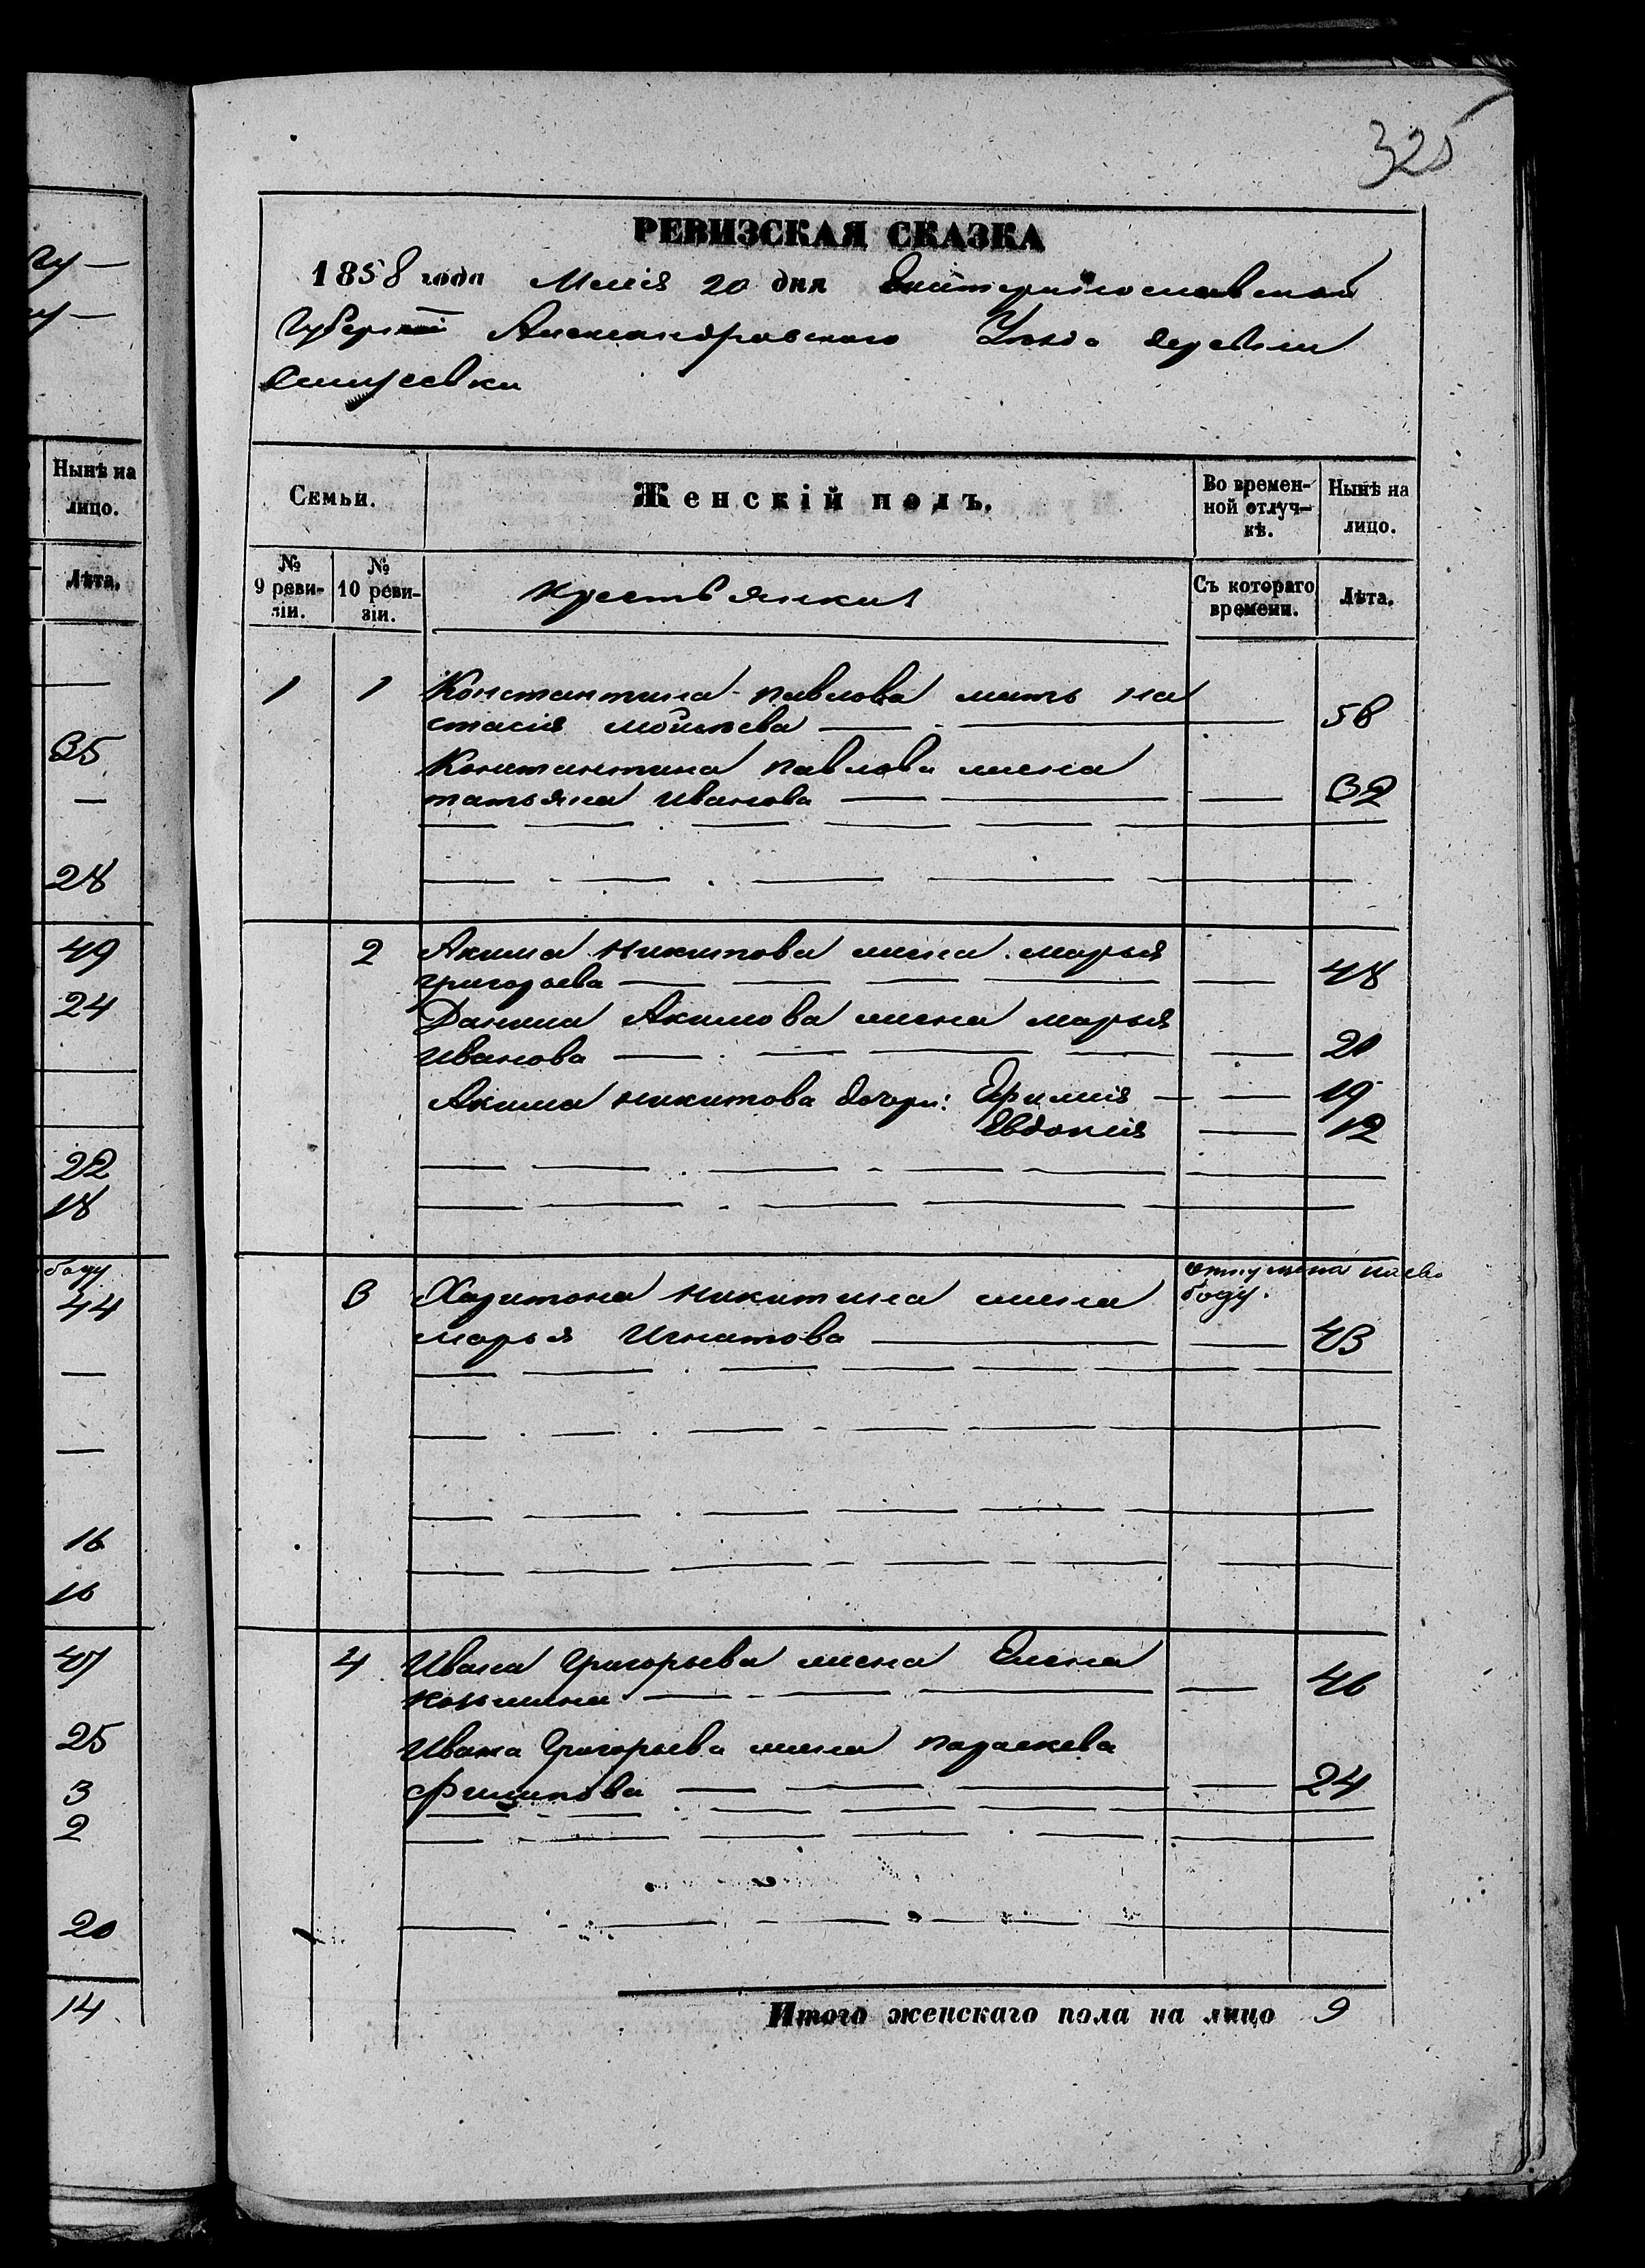 325
РЕВИЗСКАЯ СКАЗКА
1858 года Маія 20 дня Екатеринославской
Губерніи Александровского Уезда деревни
Нынѣ на
лицо.
Лѣта.
35
—
28
49
24
22
18
году
44
—
—
16
16
47
25
3
2
20
14
Семьи.
Женскій полъ.
Во времен-
ной отлуч-
кѣ.
Нынѣ на
лицо.
№
9 реви-
зіи.
№
10 реви-
зіи.
Крестьянкия
Съ котораго
времени.
Лѣта.
1 1 Константина павлова мать на
стасія мойсеева — 58
Константина павлова жена
татьяна иванова — 32
2 Акима никитова жена марья
григорьева — 48
Данила Акимова жена марья
иванова — 20
Акима никитова дочери: Ефимія — 19
Евдокия — 12
3 Харитона никитина жена
году.
марья игнатова — 43
4 Ивана григорьева жена Елена
козьмина — 46
Ивана григорьева жена параскева
филипова — 24
Итого женскаго пола на лицо 9